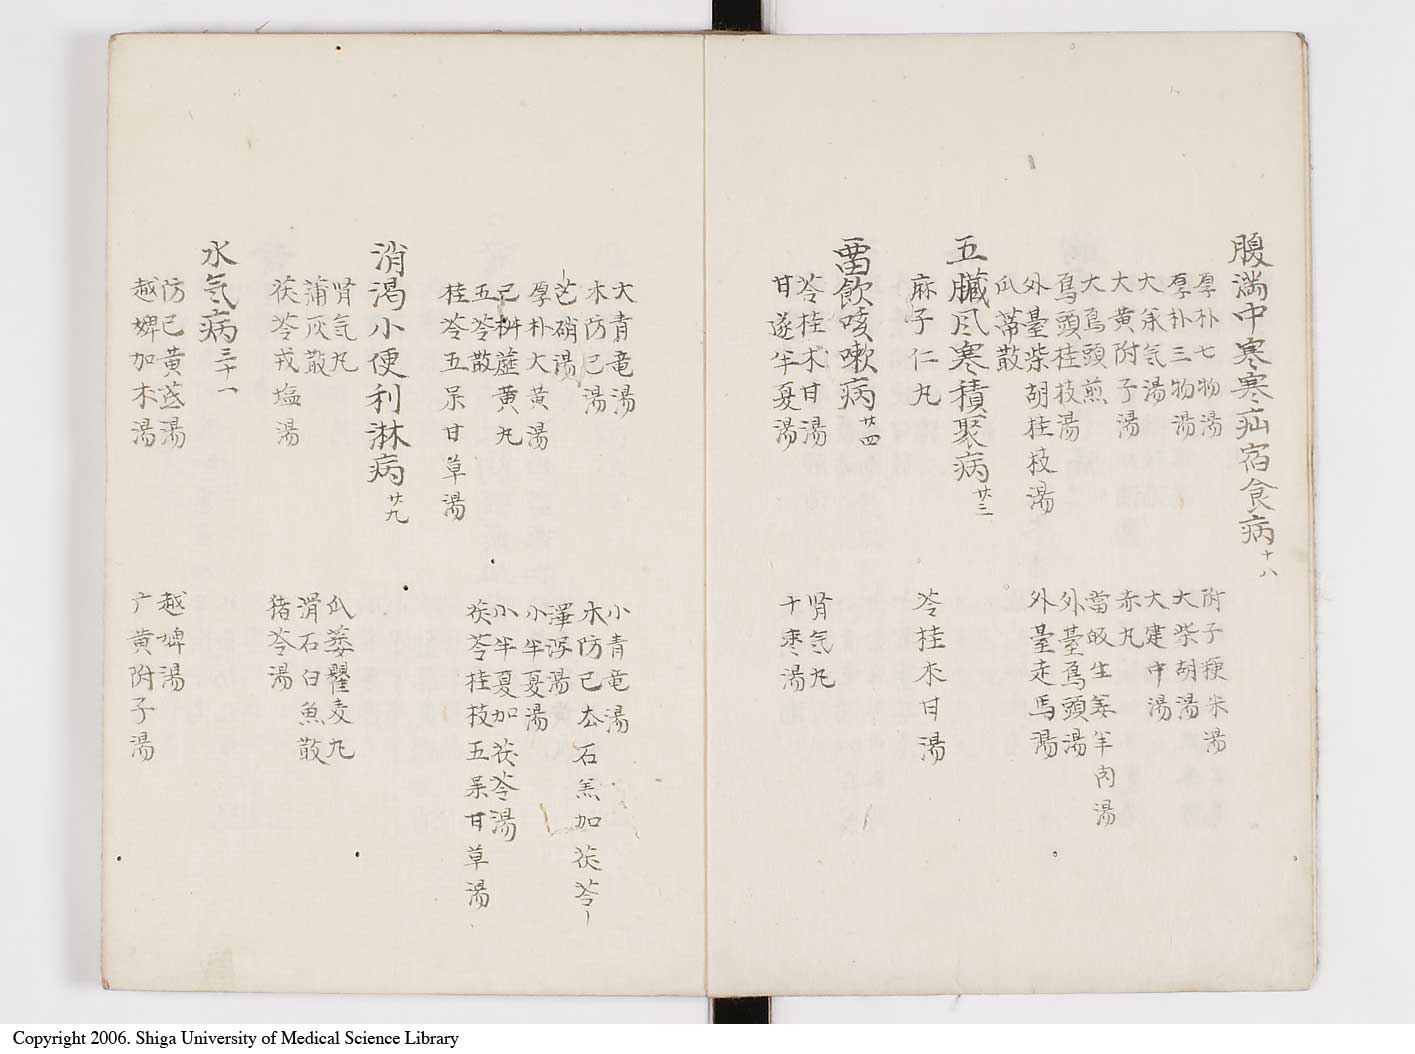 腹満中寒寒疝宿食病十八
厚朴七物湯
附子粳米湯
厚朴三物湯
大柴胡湯
大承气湯
大建中湯
大黄附子湯
赤丸
大烏頭煎
當皈生姜羊肉湯
烏頭桂枝湯
外臺烏頭湯
外臺柴胡桂枝湯
外臺走馬湯
瓜蒂散
五臓风寒積聚病廿三
麻子仁丸
苓桂朮甘湯
畱飲咳嗽病廿四
苓桂朮甘湯
肾气丸
甘遂半夏湯
十枣湯
大青竜湯
小青竜湯
木防已湯
木防已去石羔加茯苓
芒硝湯
澤泻湯
厚朴大黄湯
小半夏湯
已椒藶黄丸
小半夏加茯苓湯
五苓散
桂苓五味甘草湯
茯苓桂枝五味甘草湯
消渇小便利淋病廿九
肾气丸
瓜蒌瞿麦丸
蒲灰散
滑石白魚散
茯苓戎塩湯
猪苓湯
水気病三十一
防已黄茋湯
越婢湯
越婢加朮湯
广黄附子湯
Copyright 2006. Shiga University of Medical Science Library